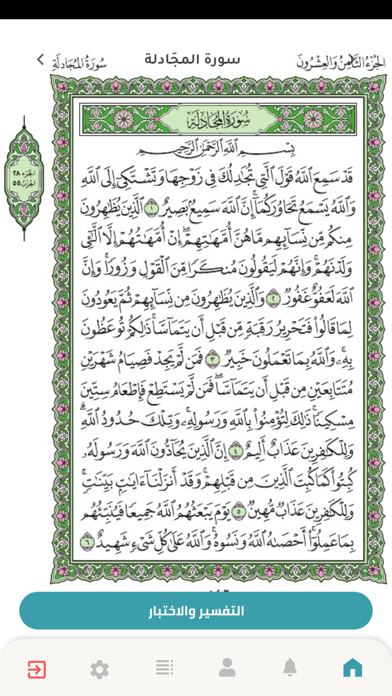 سورة المجَادلة
الجُزءُ الثَّامِنُ وَالعِشْرُونَ
سُورَةُ المُجَادلَةِ
سُورَةُ المُجَادلَةِ
الجزء ٢٨
الحزب ٥٥
بِسْمِ اللَّهِ الرَّحْمَٰنِ الرَّحِيمِ
قَدْ سَمِعَ اللَّهُ قَوْلَ الَّتِي تُجَادِلُكَ فِي زَوْجِهَا وَتَشْتَكِي إِلَى اللَّهِ
وَاللَّهُ يَسْمَعُ تَحَاوُرَكُمَا إِنَّ اللَّهَ سَمِيعٌ بَصِيرٌ ١ الَّذِينَ يُظَاهِرُونَ
مِنكُم مِّن نِّسَائِهِم مَّا هُنَّ أُمَّهَاتِهِمْ إِنْ أُمَّهَاتُهُمْ إِلَّا اللَّائِي
وَلَدْنَهُمْ وَإِنَّهُمْ لَيَقُولُونَ مُنكَرًا مِّنَ الْقَوْلِ وَزُورًا وَإِنَّ
اللَّهَ لَعَفُوٌّ غَفُورٌ ٢ وَالَّذِينَ يُظَاهِرُونَ مِن نِّسَائِهِمْ ثُمَّ يَعُودُونَ
لِمَا قَالُوا فَتَحْرِيرُ رَقَبَةٍ مِّن قَبْلِ أَن يَتَمَاسَّا ذَٰلِكُمْ تُوعَظُونَ
بِهِ وَاللَّهُ بِمَا تَعْمَلُونَ خَبِيرٌ ٣ فَمَن لَّمْ يَجِدْ فَصِيَامُ شَهْرَيْنِ
مُتَتَابِعَيْنِ مِن قَبْلِ أَن يَتَمَاسَّا فَمَن لَّمْ يَسْتَطِعْ فَإِطْعَامُ سِتِّينَ
مِسْكِينًا ذَٰلِكَ لِتُؤْمِنُوا بِاللَّهِ وَرَسُولِهِ وَتِلْكَ حُدُودُ اللَّهِ
وَلِلْكَافِرِينَ عَذَابٌ أَلِيمٌ ٤ إِنَّ الَّذِينَ يُحَادُّونَ اللَّهَ وَرَسُولَهُ
كُبِتُوا كَمَا كُبِتَ الَّذِينَ مِن قَبْلِهِمْ وَقَدْ أَنزَلْنَا آيَاتٍ بَيِّنَاتٍ
وَلِلْكَافِرِينَ عَذَابٌ مُّهِينٌ ٥ يَوْمَ يَبْعَثُهُمُ اللَّهُ جَمِيعًا فَيُنَبِّئُهُم
بِمَا عَمِلُوا أَحْصَاهُ اللَّهُ وَنَسُوهُ وَاللَّهُ عَلَىٰ كُلِّ شَيْءٍ شَهِيدٌ ٦
التفسير والاختبار